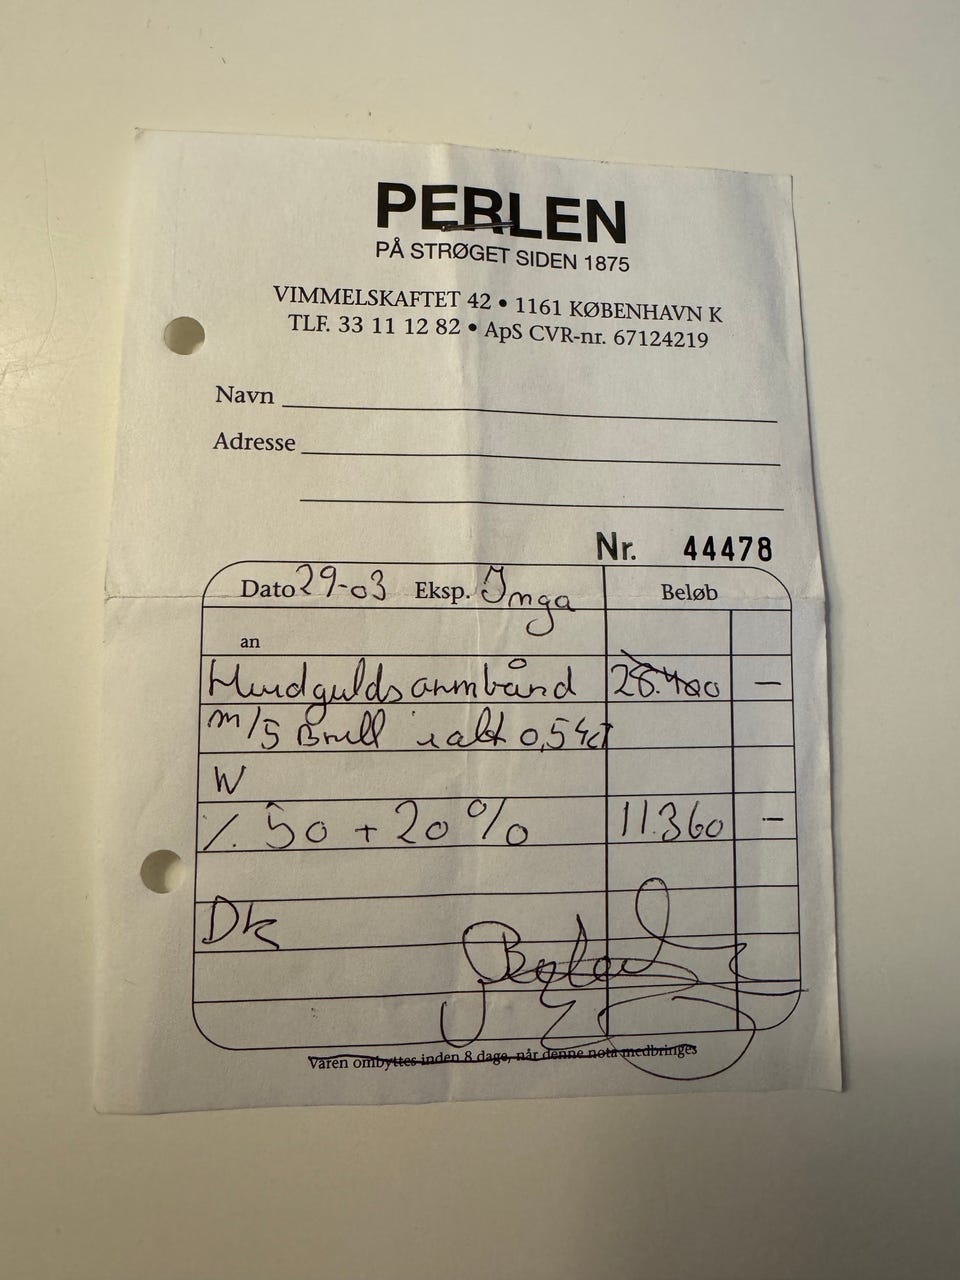 PERLEN
PÅ STRØGET SIDEN 1875
VIMMELSKAFTET 42 • 1161 KØBENHAVN K
TLF. 33 11 12 82 • ApS CVR-nr. 67124219
Navn
Adresse
Nr. 44478
Dato 29-03 Eksp. Inga Beløb
an
Hvidguldsarmbånd 28.400 —
m/5 Brill ialt 0,54ct
W
/. 50 + 20 % 11.360 —
Dk
Betalt
Varen ombyttes inden 8 dage, når denne nota medbringes